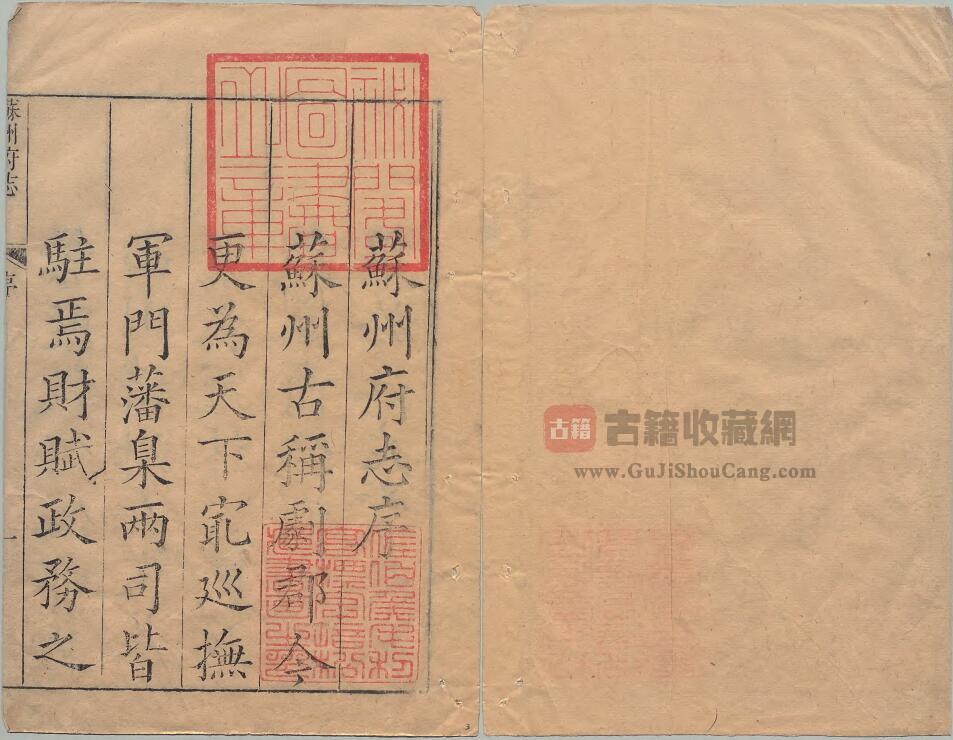 蘇州府志序
蘇州古稱劇郡今
更為天下㝡巡撫
軍門藩臬兩司皆
駐焉財賦政務之
蘇州府志
序
一
秘閣圖書之章
古籍
古籍收藏網
www.GuJiShouCang.com
3